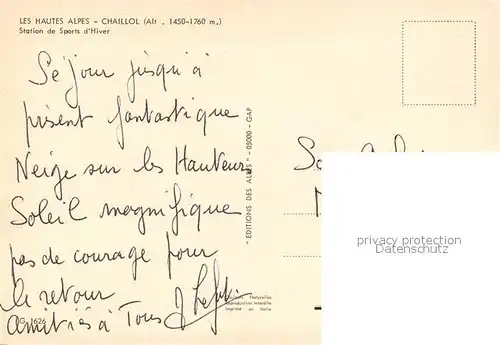 LES HAUTES ALPES - CHAILLOL (Alt. 1450-1760 m.)
Station de Sports d'Hiver
Séjour jusqu'à
présent fantastique
Neige sur les Hauteurs
Soleil magnifique
pas de courage pour
le retour
Amitiés à Tous
1626
"EDITIONS DES ALPES" - 05000 - GAP
Couleurs Naturelles
Reproduction interdite
Imprimé en Italie
privacy protection
Datenschutz